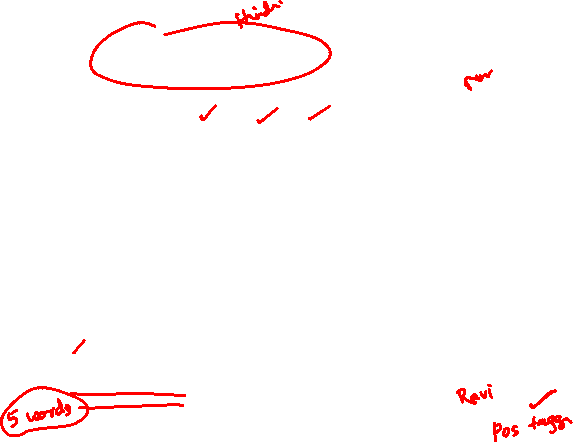 Hindi
5 words
Ravi
Pos tagg